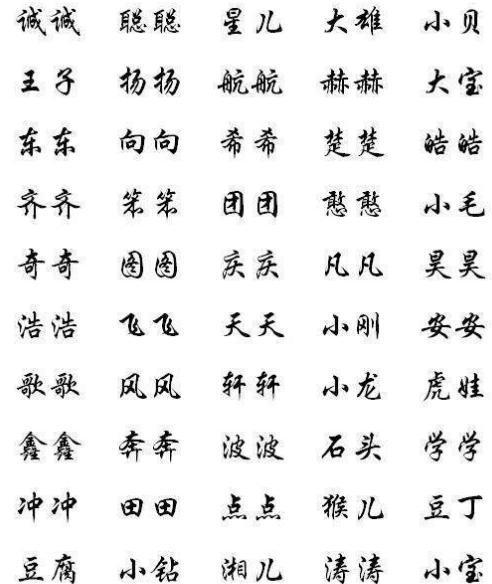 诚诚 聪聪 星儿 大雄 小贝
王子 扬扬 航航 赫赫 大宝
东东 向向 希希 楚楚 皓皓
齐齐 笨笨 团团 憨憨 小毛
奇奇 图图 庆庆 凡凡 昊昊
浩浩 飞飞 天天 小刚 安安
歌歌 风风 轩轩 小龙 虎娃
鑫鑫 奔奔 波波 石头 学学
冲冲 田田 点点 猴儿 豆丁
豆腐 小钻 湘儿 涛涛 小宝